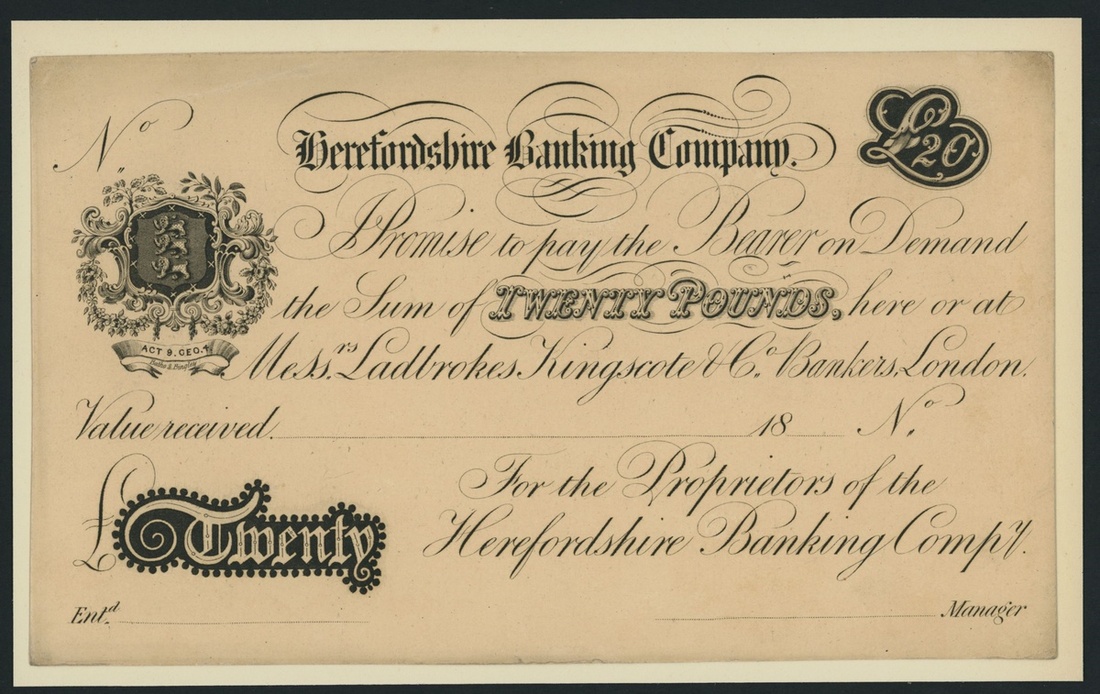 No.
Herefordshire Banking Company.
£20
I Promise to pay the Bearer on Demand
the Sum of TWENTY POUNDS, here or at
Messrs. Ladbrokes, Kingscote & Co. Bankers, London.
ACT 9. GEO. 4
Value received 18 No.
For the Proprietors of the
£ Twenty
Herefordshire Banking Compy.
Entd. Manager